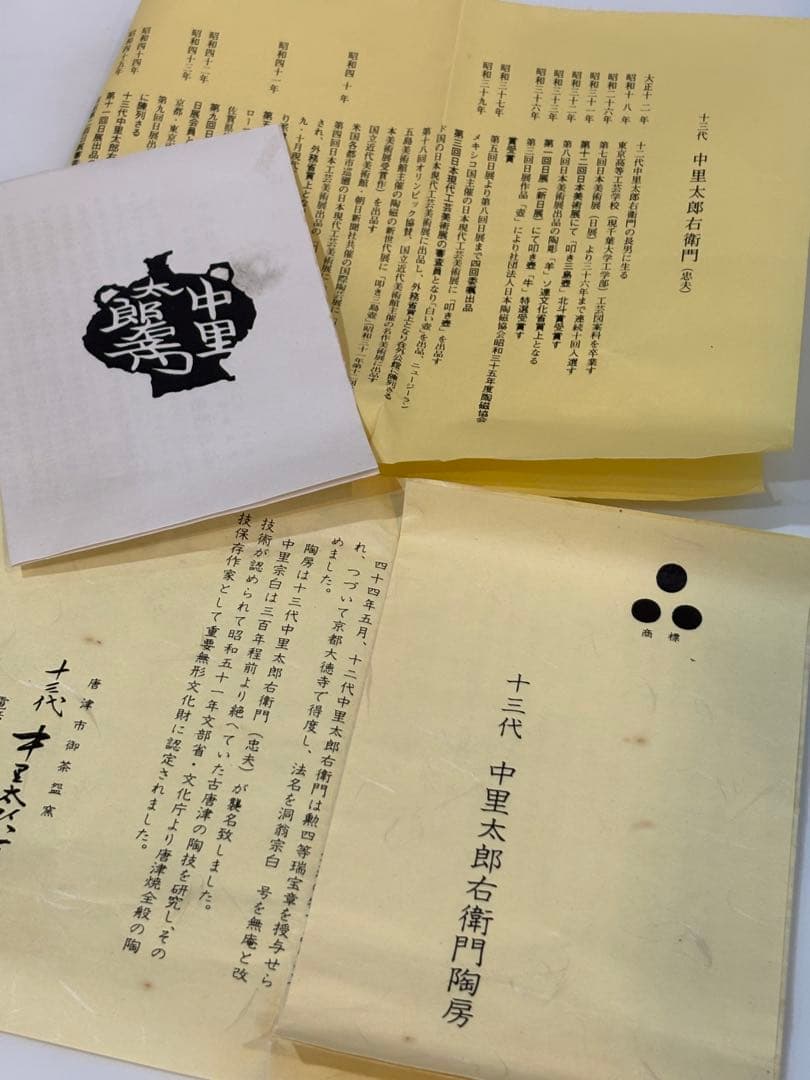 十三代 中里太郎右衛門（忠夫）
大正十二年 十二代中里太郎右衛門の長男に生る
昭和十八年 東京高等工芸学校（現千葉大学工学部）工芸図案科を卒業す
昭和二十六年 第七回日本美術展（日展）より三十六年まで連続十回入選す
昭和三十一年 第十二回日本美術展にて「叩き三島壺」北斗賞受賞す
昭和三十二年 第八回日本美術展出品の陶彫「羊」ソ連文化省買上となる
昭和三十三年 第一回日展（新日展）にて叩き壺「牛」特選受賞す
昭和三十六年 第三回日展作品「壺」により社団法人日本陶磁協会昭和三十五年度陶磁協会
賞受賞
昭和三十七年 第五回日展より第八回日展まで四回委嘱出品
昭和三十九年 メキシコ国主催の日本現代工芸美術展に「叩き壺」を出品す
第三回日本現代工芸美術展の審査員となり「白い壺」を出品、ニュージーラン
ド国の日本現代工芸美術展に出品し、外務省買上となり在外公館に陳列さる
第十八回オリンピック協賛、国立近代美術館主催の名作美術展に出品す
五島美術館主催の陶磁の新世代展に「叩き三島壺」（昭和三十一年第十二回
本美術展受賞作）を出品す
昭和四十年 国立近代美術館・朝日新聞社共催の国際陶芸展に
米国各都市巡廻の日本現代工芸美術展に
第四回日本現代工芸美術展出品の
され、外務省買上となり在
九・十月現代
昭和四十一年
佐賀県
第九回日
昭和四十二年 日展会員と
昭和四十三年 京都・東京
第九回日展出
昭和四十四年 に陳列さる
十三代中里太郎右
昭和四十五年 第十一回日展出品
中里
太郎右衛門
四十四年五月、十二代中里太郎右衛門は勲四等瑞宝章を授与せら
れ、つづいて京都大徳寺で得度し、法名を洞翁宗白 号を無庵と改
めました。
陶房は十三代中里太郎右衛門（忠夫）が襲名致しました。
中里宗白は三百年程前より絶へていた古唐津の陶技を研究し、その
技術が認められて昭和五十一年文部省・文化庁より唐津焼全般の陶
技保存作家として重要無形文化財に認定されました。
唐津市御茶盌窯
十三代 中里太
電話
商標
十三代 中里太郎右衛門陶房